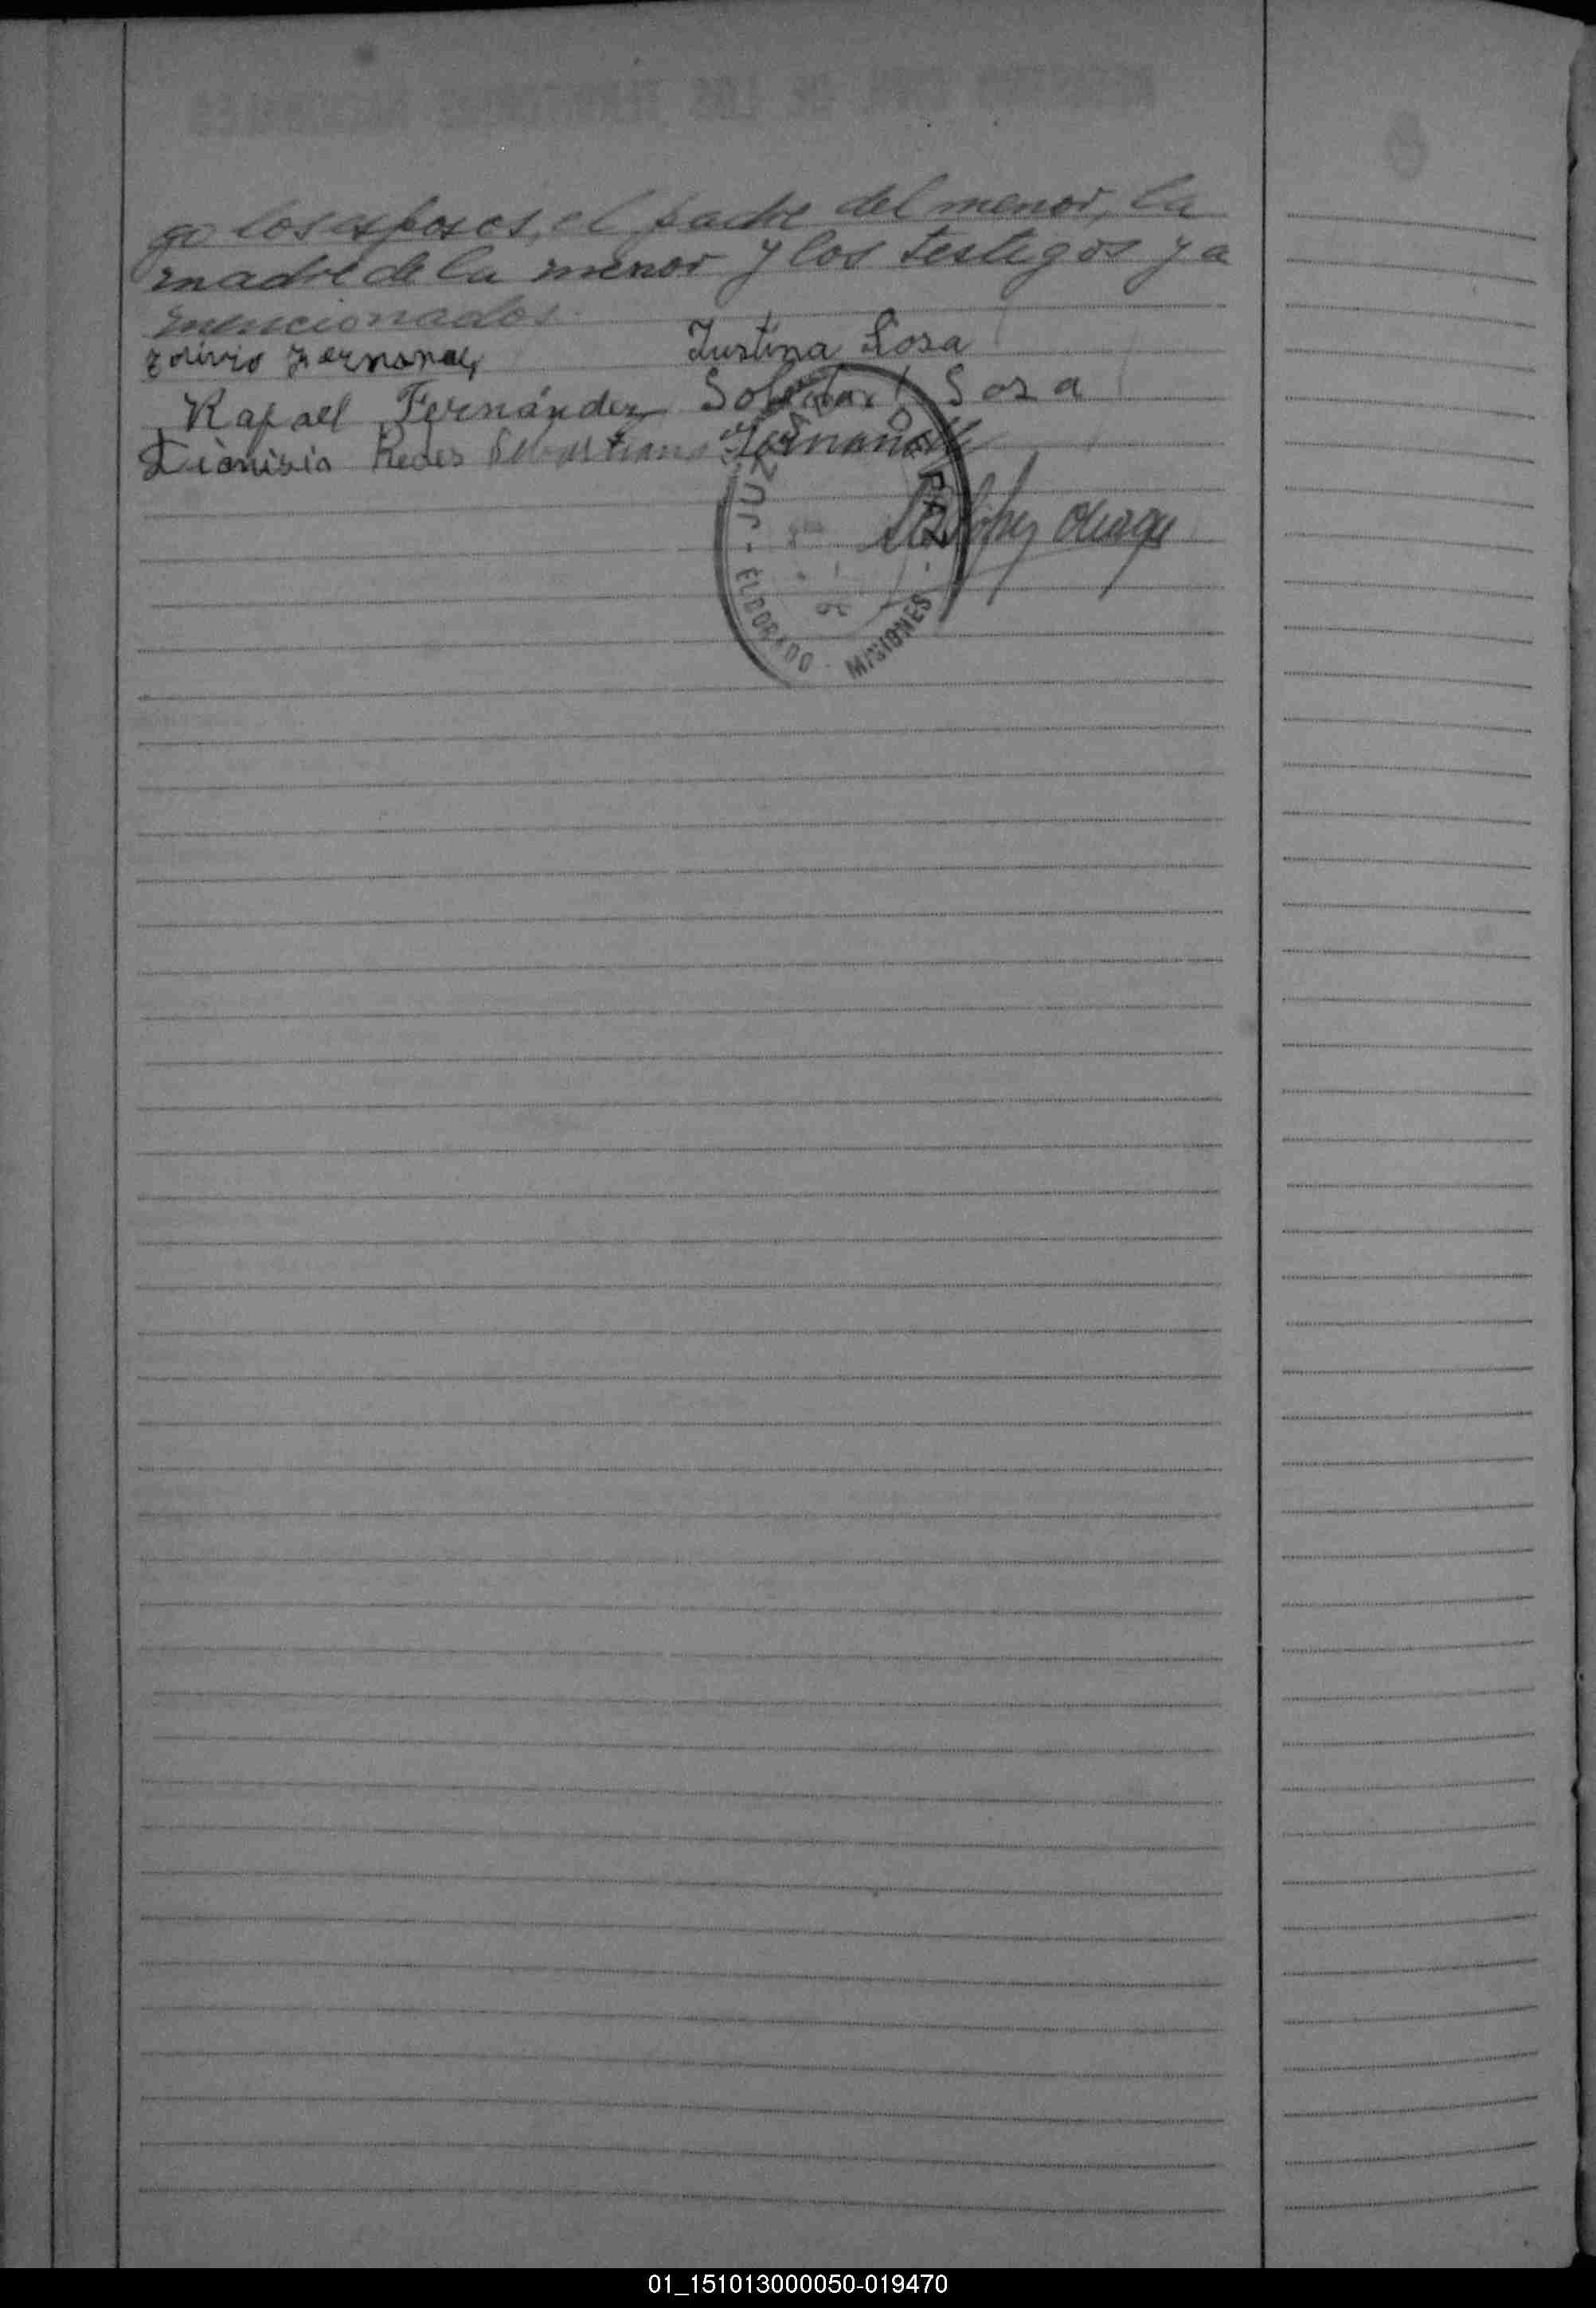 go los esposos, el padre del menor, la
madre de la menor y los testigos ya
mencionados.
Fernandez Justina Sosa
Rafael Fernández Soledad Sosa
Dionisio Sebastiana Fernandez
López
JUZ PAZ - ELDORADO - MISIONES -
01_151013000050-019470